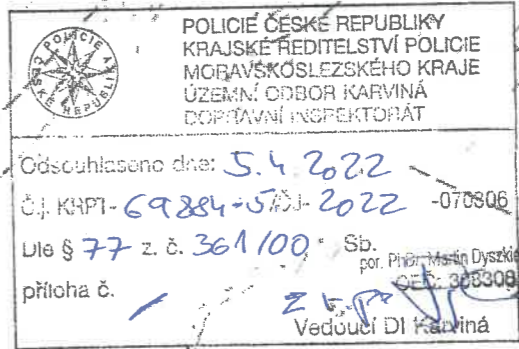 POLICIE ČESKÉ REPUBLIKY
POLICIE ČESKÉ REPUBLIKY
KRAJSKÉ ŘEDITELSTVÍ POLICIE
MORAVSKOSLEZSKÉHO KRAJE
ÚZEMNÍ ODBOR KARVINÁ
DOPRAVNÍ INSPEKTORÁT
Odsouhlaseno dne: 5.4 2022
Č.j. KRPT- 69884-5/ČJ- 2022 -070306
Dle § 77 z. č. 361/00 Sb.
por. PhDr. Martin Dyszkie
OEČ: 308308
příloha č. /
Vedoucí DI Karviná